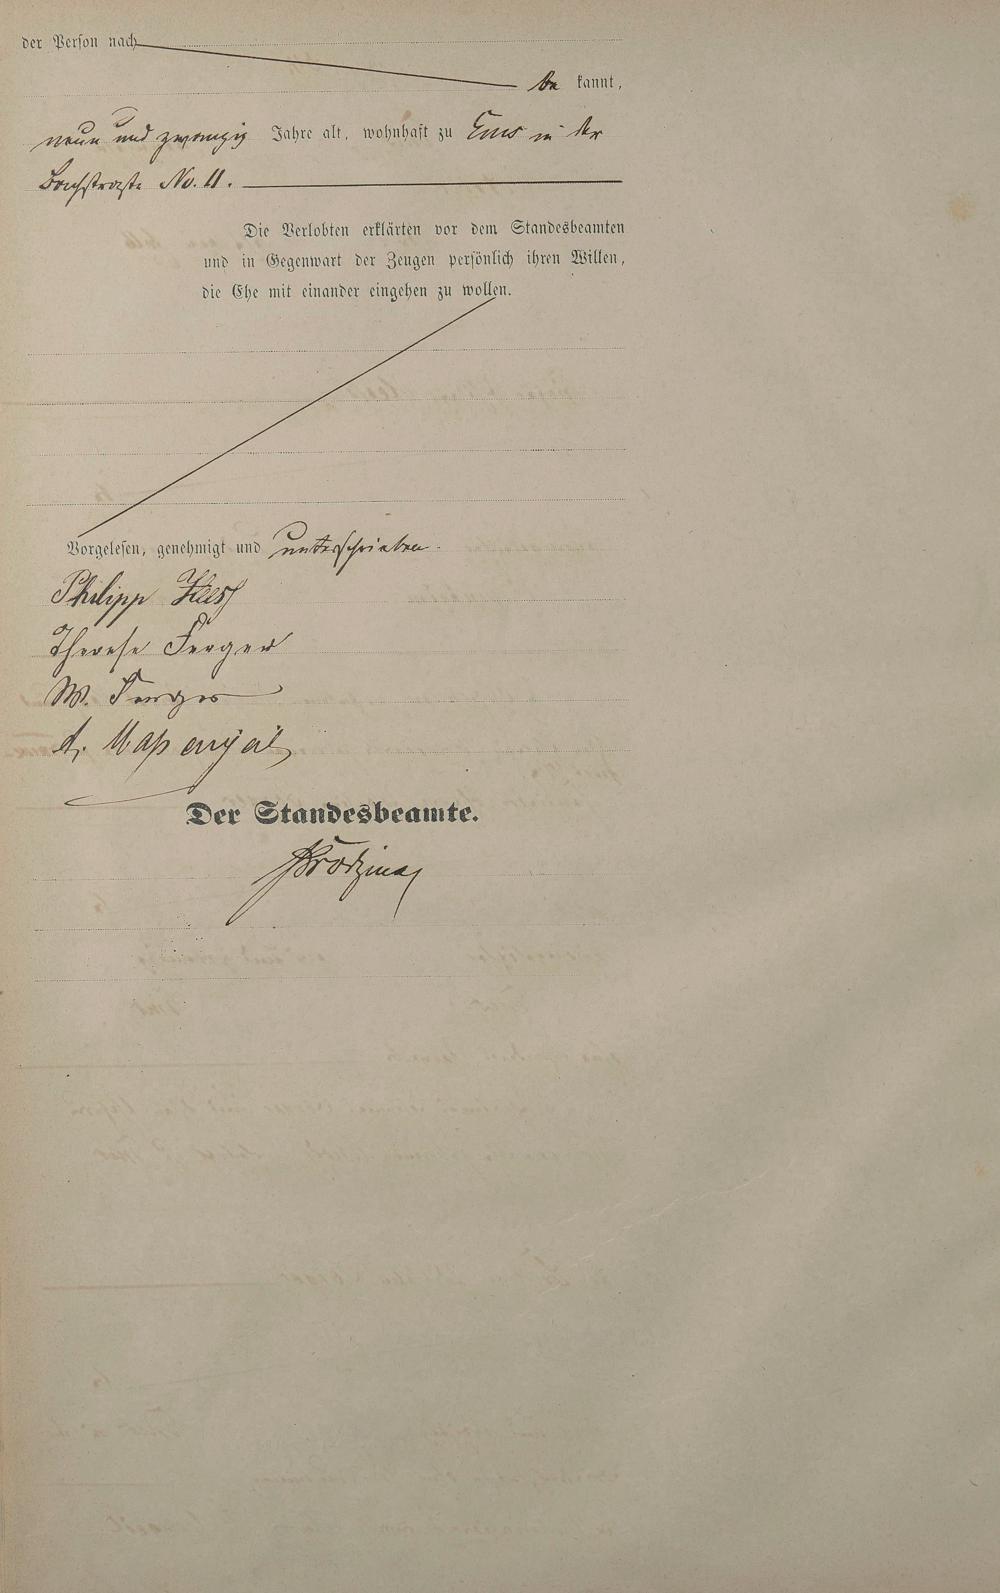 der Person nach
be kannt,
neun und zwanzig Jahre alt, wohnhaft zu Ems in der
Bachstraße No. 11.
Die Verlobten erklärten vor dem Standesbeamten
und in Gegenwart der Zeugen persönlich ihren Willen,
die Ehe mit einander eingehen zu wollen.
Vorgelesen, genehmigt und unterschrieben.
Philipp
Therese Ferger
W. Ferger
Der Standesbeamte.